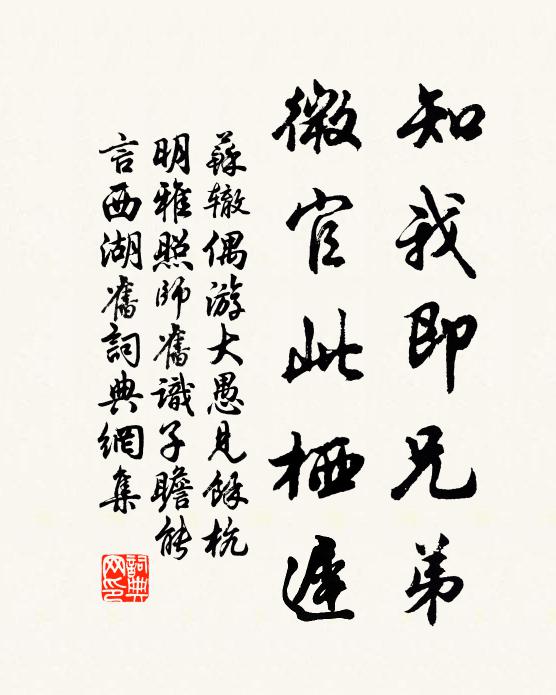 知我即兄弟
微官此栖遲
蘇轍偶游大愚見餘杭
明雅照師舊識子瞻能
言西湖舊詞典網集
詞典网印